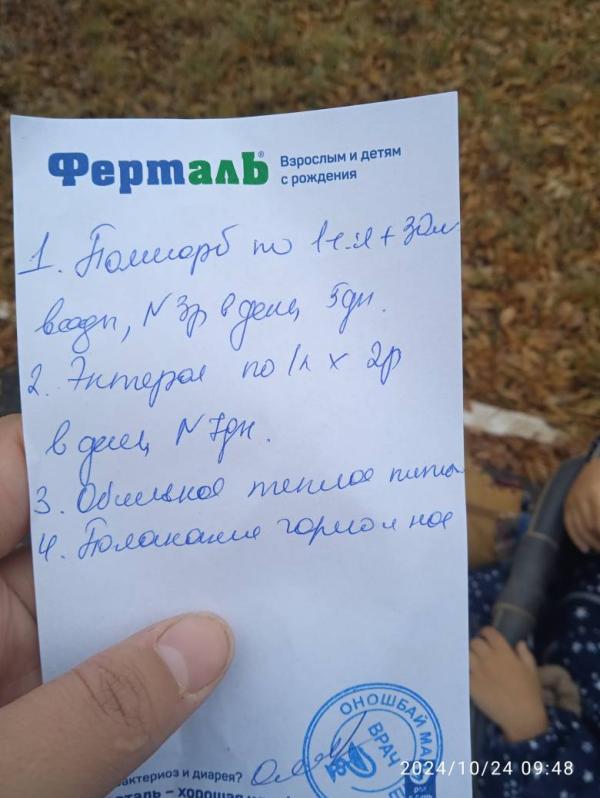 Ферталь®
Взрослым и детям
с рождения
1. Полисорб по 1ч.л + 30мл
воды, N 3р в день, 5дн.
2. Энтерол по 1к х 2р
в день N 7дн.
3. Обильное теплое питье
4. Полоскание горло и нос
ОНОШБАЙ МА
ВРАЧ
актериоз и диарея?
рталь – хорошая
2024/10/24 09:48